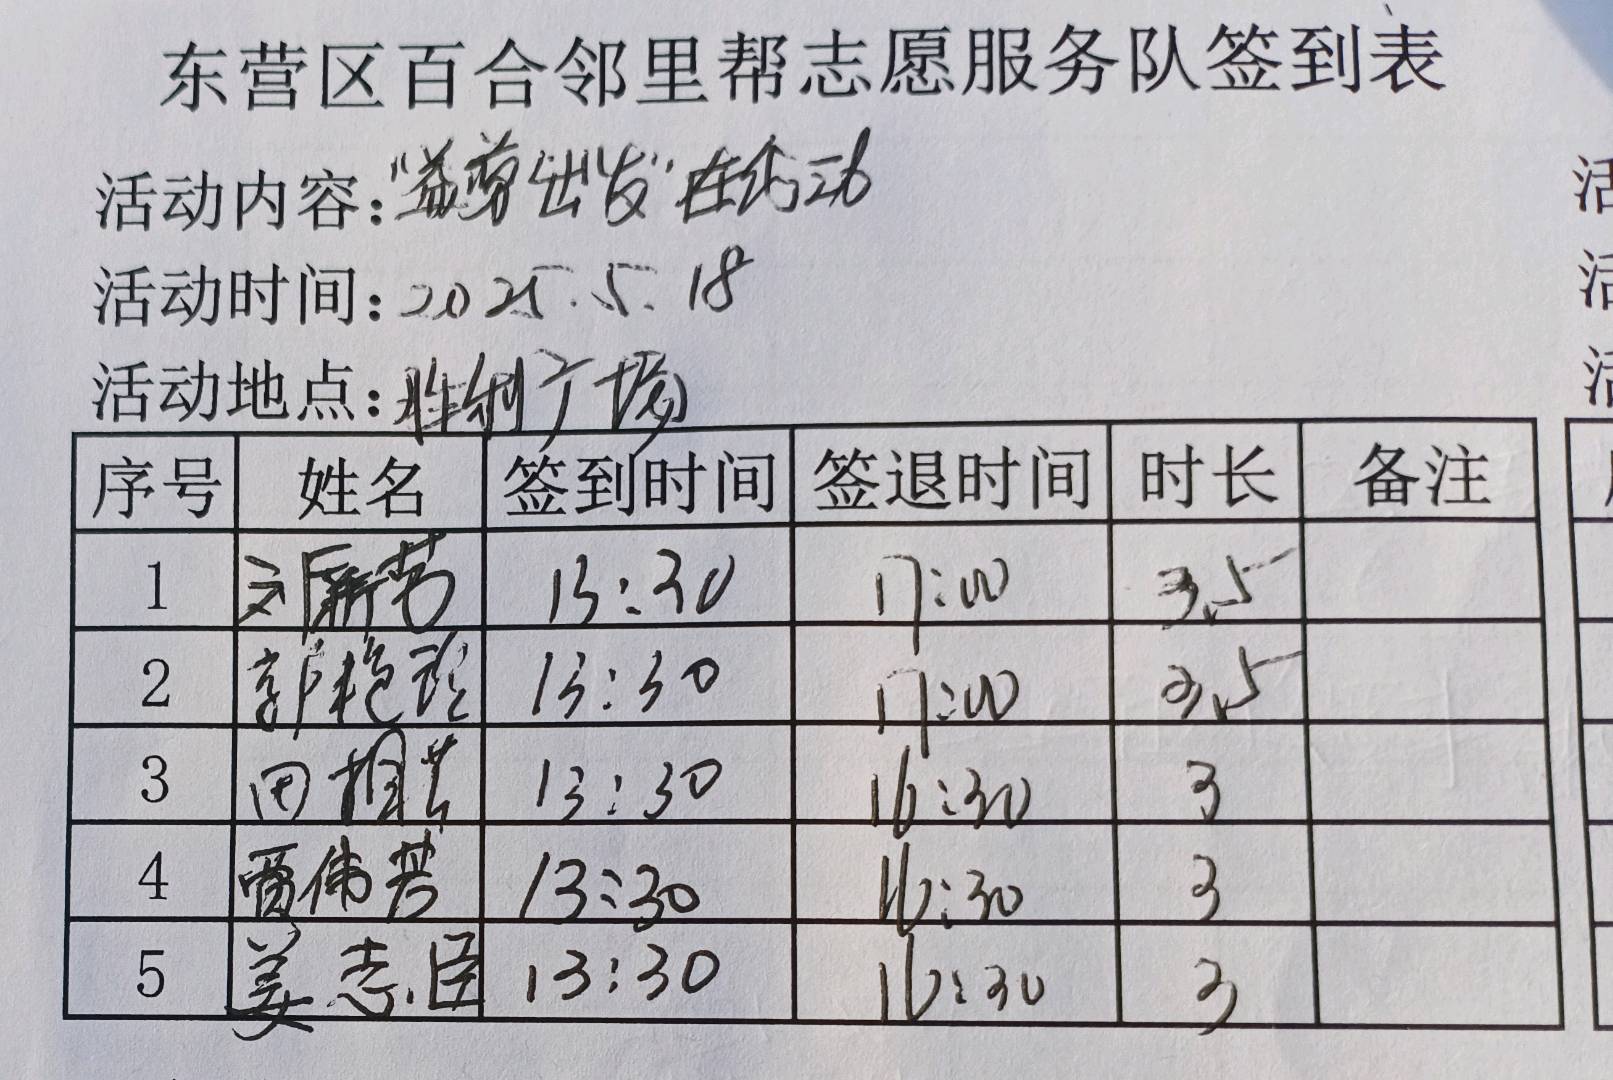 东营区百合邻里帮志愿服务队签到表
活动内容:“益剪出发”在行动
活动时间:2025.5.18
活动地点:胜利广场
序号 姓名 签到时间 签退时间 时长 备注
1 刘新芳 13:30 17:00 3.5
2 郭艳玲 13:30 17:00 3.5
3 田相芸 13:30 16:30 3
4 贾伟芳 13:30 16:30 3
5 姜志臣 13:30 16:30 3
活
活
活